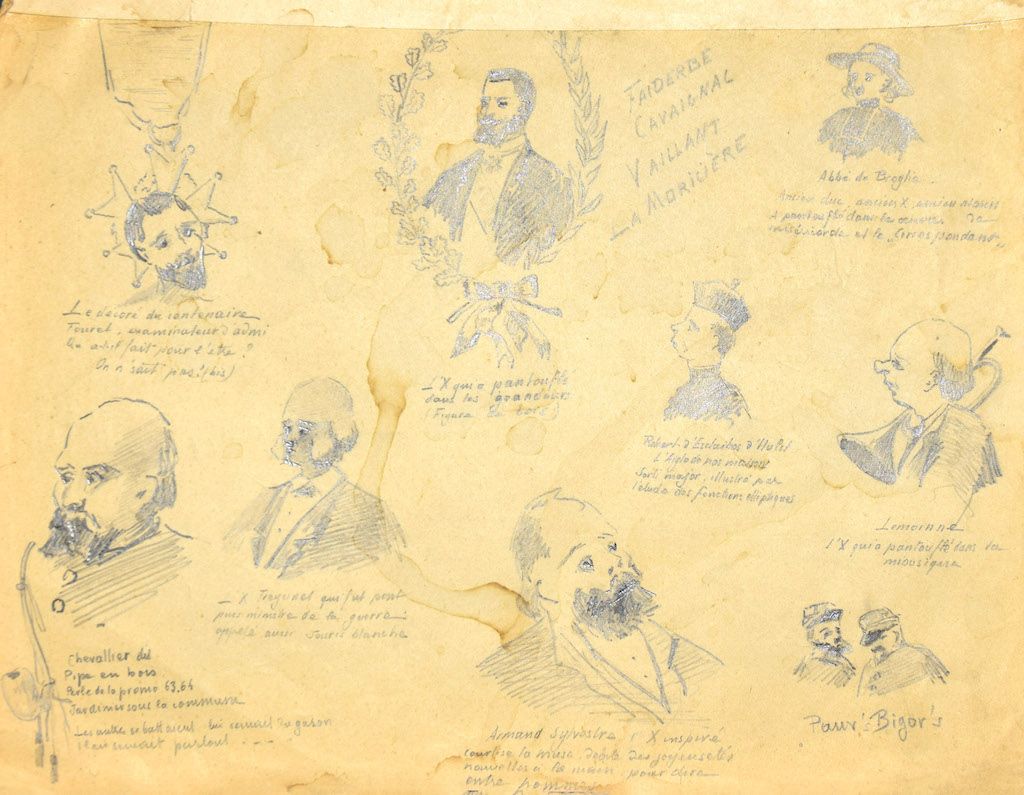 FAIDERBE
CAVAIGNAC
VAILLANT
LA MORICIÈRE
Abbé de Broglie
Ancien duc, ancien X, ancien
A pantouflé dans la
miséricorde et le "Correspondant"
Le décoré du centenaire
Touret, examinateur d'admi
Qu'a-t-il fait pour l'être ?
On n'sait pas ! (bis)
L'X qui a pantouflé
dans les grandeurs
(Figure en bois)
Robert d'Esclaibes d'Hulst
L'Aiglo de nos
Sorti major, illustré par
l'étude des fonctions elliptiques
Lemoinne
L'X qui a pantouflé dans la
mousique
L'X Freycinet qui fut
pour ministre de la guerre
appelé aussi Souris blanche
Chevallier dit
Pipe en bois
Perle de la promo 63.64
Jardinier sous la commune
Les autres se battaient, lui semait du gazon
Il en semait partout ....
Armand Sylvestre l'X inspiré
courtise la muse, débite des joyeusetés
nouvelles à la main, pour dire
entre hommes
Pauv's Bigor's